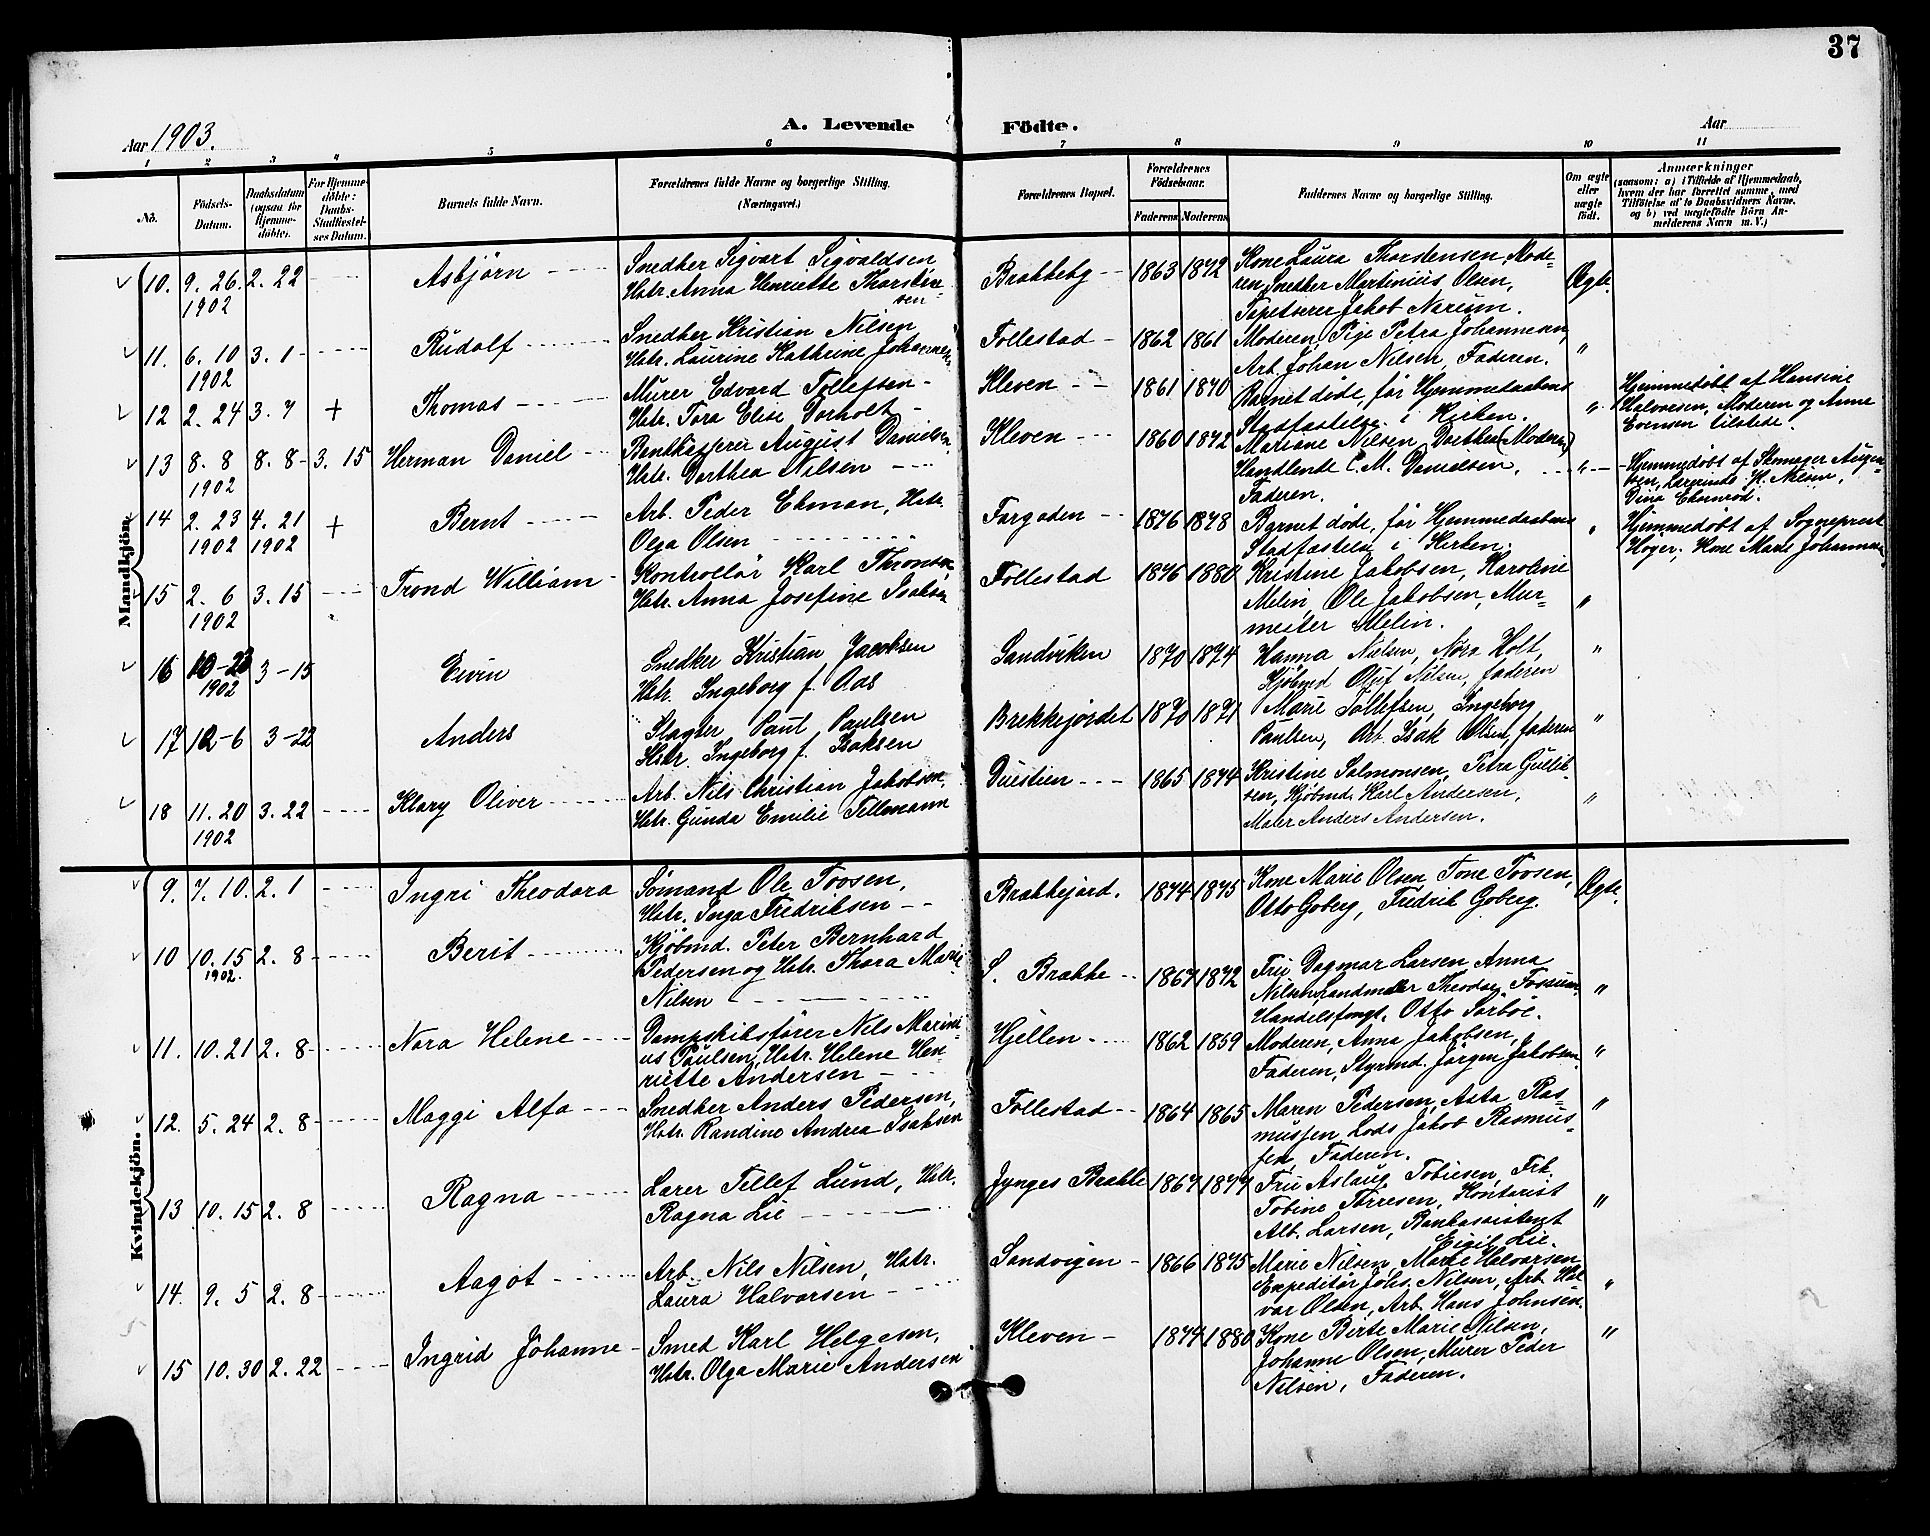 37
Aar 1903.
A. Levende Födte.
Aar
1 2 3 4 5 6 7 8 9 10 11
No.
Födsels-Datum.
Daabsdatum (ogsaa for Hjemmedöbte).
For Hjemmedöbte: Daabs-Stadfæstelses Datum.
Barnets fulde Navn.
Forældrenes fulde Navne og borgerlige Stilling. (Næringsvei.)
Forældrenes Bopæl.
Forældrenes Födselsaar.
Faderens Moderens
Faddernes Navne og borgerlige Stilling.
Om ægte eller uægte födt.
Anmærkninger
(saasom: a) i Tilfælde af Hjemmedaab, hvem der har forrettet samme, med Tilföielse af to Daabsvidners Navne, og b) ved uægtefödte Börn Anmelderens Navn m. V.)
Mandkjön.
10. 9. 26. 1902 2. 22 Asbjörn
Snedker Sigvart Sigvaldsen
Hstr. Anna Henriette Thorstensen
Brakkebg 1863 1872
Kone Laura Thorstensen, Moderen, Snedker Martinius Olsen,
Tapetserer Jakob Narum. Ægte.
11. 6. 10 1902 3. 1 Rudolf
Snedker Kristian Nilsen
Hstr. Laurine Kathrine Johannesen
Follestad 1862 1861
Moderen, Pige Petra Johannesen,
Arb. Johan Nilsen, Faderen. "
12 2. 24 3. 7 + Thomas
Murer Edvard Tollefsen
Hstr. Tora Elise Dorholt
Kleven 1861 1870
Barnet døde, før Hjemmedaabens
Stadfæstelse i Kirken. "
Hjemmedøbt af Hansine
Halvorsen, Moderen og Anna
Evensen tilstede.
13 8. 8 1902 8. 8 3. 15 Herman Daniel
August Danielsen
Hstr. Dorthea Nilsen
Kleven 1860 1872
Mariane Nilsen, Dorthea (Moderen)
Handlende C. M. Danielsen,
Faderen. "
Hjemmedøbt af Skomager
H. Nilsen,
Dina
14 2. 23 1902 4. 21 1902 + Bernt
Arb. Peder Ekman, Hstr.
Olga Olsen
Fargaden 1876 1878
Barnet døde, før Hjemmedaabens
Stadfæstelse i Kirken. "
Hjemmedøbt af Sogneprest
Høyer; Kone Marie Johannesen
15 2. 6 1902 3. 15 Trond William
Kontrollør Karl Thronsen
Hstr. Anna Josefine Isaksen
Follestad 1876 1880
Kristine Jakobsen, Karoline
Melin, Ole Jakobsen, Murmester Melin. "
16 10-23 1902 3-15 Eivin
Snedker Kristian Jacobsen
Hstr. Ingeborg f. Aas
Sandviken 1870 1874
Hanna Nielsen, Nora Holt,
Kjøbmd Oluf Nilsen, faderen "
17 12-6 3-22 Anders
Slagter Paul Paulsen
Hstr. Ingeborg f. Isaksen
Brekkejordet 1870 1871
Marie Tollefsen, Ingeborg
Paulsen, Arb. Isak Olsen, faderen "
18 11. 20 1902 3. 22 Klary Oliver
Arb. Nils Christian Jakobsen,
Hstr. Gunda Emilie Tellmann
Duestien 1865 1874
Kristine Salmonsen, Petra Gulliksen, Kjöbmd. Karl Andersen,
Maler Anders Andersen. "
Kvindekjön.
9. 7. 10. 2. 1 Ingri Theodora
Sömand Ole Toosen,
Hstr. Inga Fredriksen
Brakkejord. 1874 1875
Kone Marie Olsen, Tone Toosen,
Otto Goberg, Fredrik Goberg. Ægte.
10 10. 15 1902. 2. 8 Berit
Kjöbmd. Peter Bernhard
Pedersen og Hstr. Thora Marie
Nilsen
S. Brakke 1867 1872
Fru Dagmar Larsen, Anna
Nilsen, Landmaaler Theodor Fossum,
Handelsfangt. Otto Sörböe. "
11. 10. 21 2. 8 Nora Helene
Dampskibsfører Nils Marinius Paulsen, Hstr. Helene Henriette Andersen
Hjellen 1862 1859
Moderen, Anna Jakobsen,
Faderen, Styrmd. Jörgen Jakobsen. "
12. 5. 24 2. 8 Maggi Alfa
Snedker Anders Pedersen,
Hstr. Randine Andrea Isaksen
Follestad 1864 1865
Maren Pedersen, Asta Rasmussen, Lods Jakob Rasmussen, Faderen. "
13 10. 15 2. 8 Ragna
Lærer Tellef Lund, Hstr.
Ragna Lie
Jynges Brakke 1867 1877
Fru Aslaug Tobiesen, Frk.
Tobine Torresen, Kontorist
Alb. Larsen, Bankassistent
Eigil Lie. "
14. 9. 5 2. 8 Aagot
Arb. Nils Nilsen, Hstr.
Laura Halvorsen
Sandvigen 1866 1875
Marie Nilsen, Marie Halvorsen
Expeditör Johs. Nilsen, Arb. Halvor Olsen, Arb. Hans Johnsen. "
15 10. 30 2. 22 Ingrid Johanne
Smed Karl Helgesen,
Hstr. Olga Marie Andersen
Kleven 1874 1880
Kone Birte Marie Nilsen,
Johanne Olsen, Murer Peder
Nilsen, Faderen. "